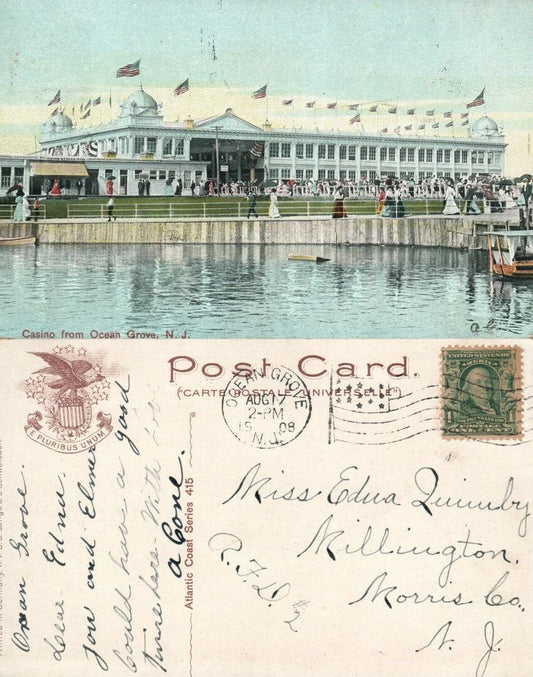 Casino from Ocean Grove, N. J.
a C.
Post Card.
("CARTE POSTALE UNIVERSELLE")
E PLURIBUS UNUM
OCEAN GROVE
AUG 17
2-PM
1908
N.J.
UNITED STATES OF AMERICA
FRANKLIN
ONE CENT
Ocean Grove.
Dear Edna.
you and Elmer
could have a good
time here. With love
a Cone.
Atlantic Coast Series 415
Miss Edna Quimby
Millington.
Morris Co.,
N. J.
R.F.D. #2